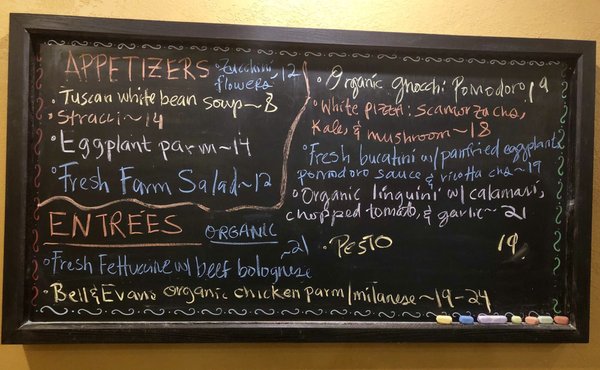 APPETIZERS
• Zucchini, 12
flowers
• Tuscan white bean soup ~ 8
• Stracci ~ 14
• Eggplant parm ~ 14
• Fresh Farm Salad ~ 12
ENTRÉES ORGANIC
• Fresh Fettuccine w/ beef bolognese ~21
• Bell & Evans organic chicken parm/milanese ~ 19-24
• Organic gnocchi Pomodoro 19
• White pizza: scamorza chs,
Kale, & mushroom ~ 18
• Fresh bucatini w/ panfried eggplant
pomodoro sauce & ricotta chs ~ 19
• Organic linguini w/ calamari,
chopped tomato, & garlic ~ 21
• PESTO 19